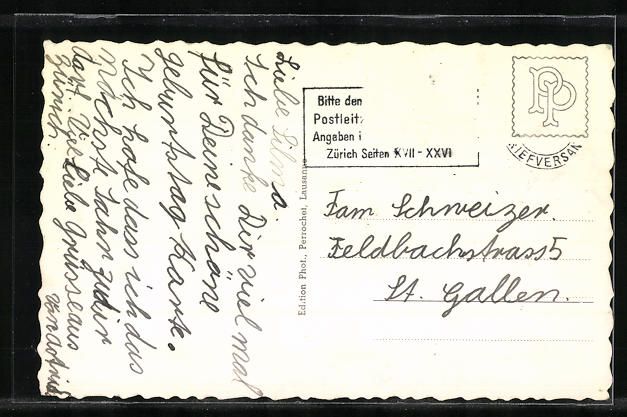 Liebe Selma.
Ich danke Dir viel mal
für Deine schöne
geburtstag Karte.
Ich hofe dass ich das
nächste Jahr zu dir
darf. Viele Liebe Grüsse aus
Zürich
Edition Phot., Perrochet, Lausanne
Bitte den
Postleit
Angaben i
Zürich Seiten XVII - XXVI
PP
RIEFVERSAN
Fam Schweizer.
Feldbachstrass 5
St. Gallen.